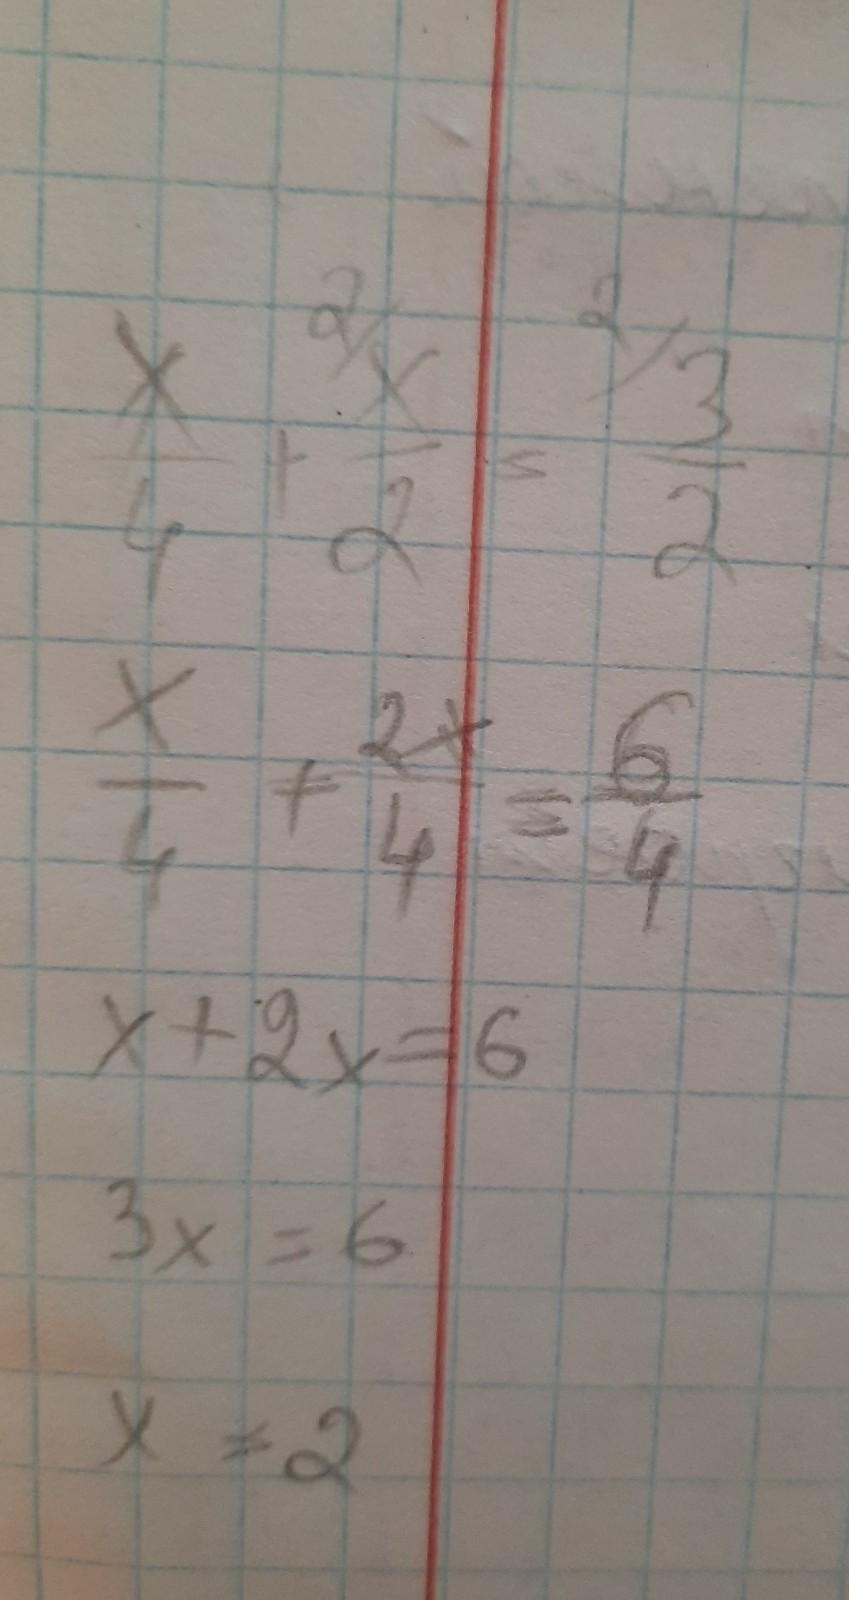 x/4 + 2/ x/2 = 2/ 3/2
x/4 + 2x/4 = 6/4
x+2x=6
3x = 6
x = 2